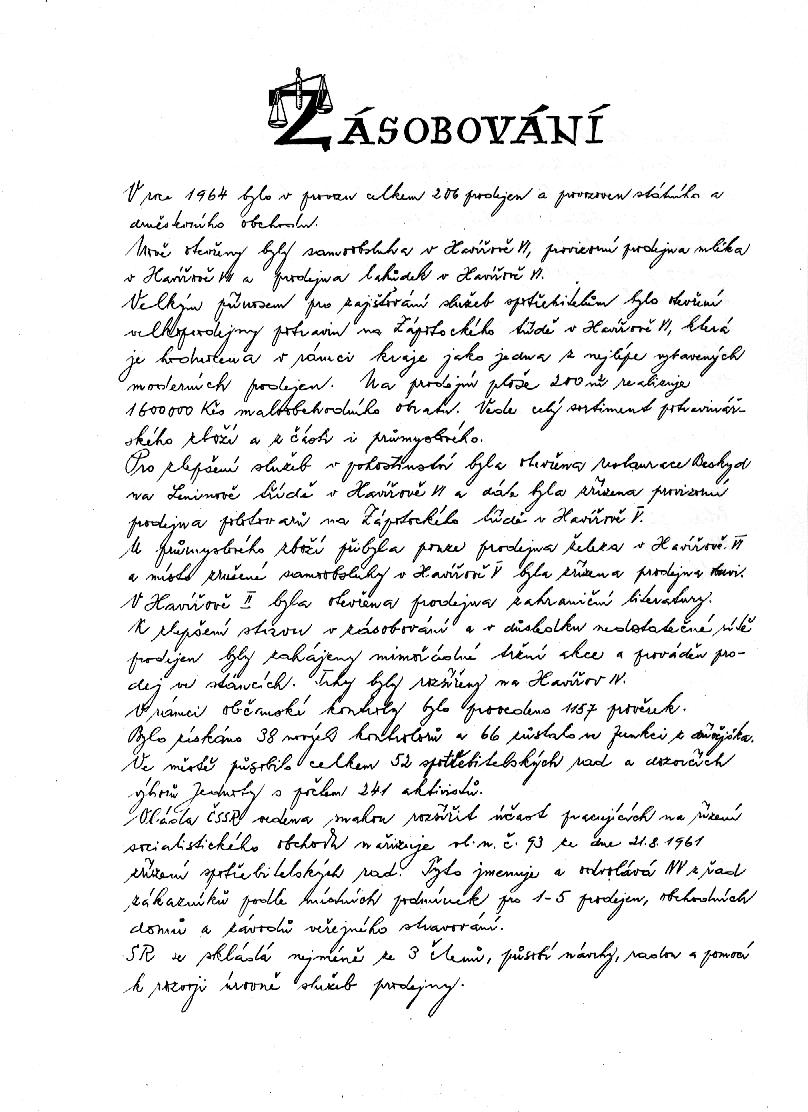 ZÁSOBOVÁNÍ
V roce 1964 bylo v provozu celkem 206 prodejen a provozoven státního a
družstevního obchodu.
Nově otevřeny byly samoobsluha v Havířově VI, provizorní prodejna mléka
v Havířově VII a prodejna lahůdek v Havířově VI.
Velkým přínosem pro zajišťování služeb spotřebitelům bylo otevření
velkoprodejny potravin na Zápotockého třídě v Havířově VI, která
je hodnocena v rámci kraje jako jedna z nejlépe vybavených
moderních prodejen. Na prodejní ploše 200 m² realizuje
1600000 Kčs maloobchodního obratu. Vede celý sortiment potravinář-
ského zboží a z části i průmyslového.
Pro zlepšení služeb v pohostinství byla otevřena restaurace Beskyd
na Leninově třídě v Havířově VI a dále byla zřízena provizorní
prodejna polotovarů na Zápotockého třídě v Havířově V.
U průmyslového zboží přibyla pouze prodejna železa v Havířově VI
a místo zrušené samoobsluhy v Havířově V byla zřízena prodejna obuvi.
V Havířově II byla otevřena prodejna zahraniční literatury.
K zlepšení stavu v zásobování a v důsledku nedostatečné sítě
prodejen byly zahájeny mimořádné tržní akce a prováděn pro-
dej ve stáncích. Trhy byly rozšířeny na Havířov IV.
V rámci občanské kontroly bylo provedeno 1157 prověrek.
Bylo získáno 38 nových kontrolorů a 66 zůstalo ve funkci z dřívějška.
Ve městě působilo celkem 52 spotřebitelských rad a dozorčích
výborů Jednoty s počtem 241 aktivistů.
Vláda ČSSR vedena snahou rozšířit účast pracujících na řízení
socialistického obchodu nařizuje vl. n. č. 93 ze dne 21.8.1961
zřízení spotřebitelských rad. Tyto jmenuje a odvolává NV z řad
zákazníků podle místních podmínek pro 1-5 prodejen, obchodních
domů a závodů veřejného stravování.
SR se skládá nejméně ze 3 členů, působí návrhy, radou a pomocí
k rozvoji úrovně služeb prodejny.